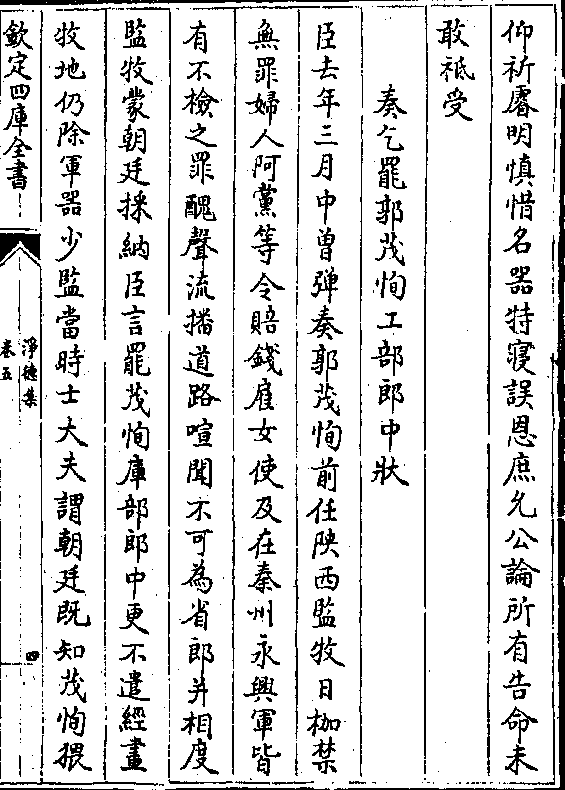 仰祈睿明慎惜名器特寢誤恩庶允公論所有告命未
敢祗受
奏乞罷郭茂恂工部郎中狀
臣去年三月中曾彈奏郭茂恂前任陜西監牧日枷禁
無罪婦人阿黨等令賠錢雇女使及在秦州永興軍皆
有不檢之罪醜聲流播道路喧聞不可為省郎并相度
監牧蒙朝廷採納臣言罷茂恂庫部郎中更不遣經畫
牧地仍除軍器少監當時士大夫謂朝廷既知茂恂猥
欽定四庫全書
淨德集
卷五
四